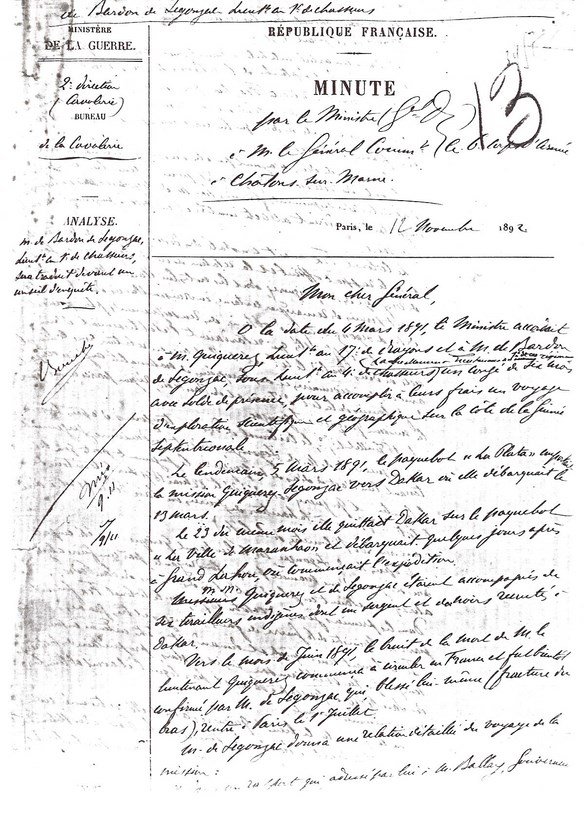 de Bardon de Segonzac, Lieut. au 1er de chasseurs
MINISTÈRE
DE LA GUERRE.
2e direction
(Cavalerie)
BUREAU
de la Cavalerie
ANALYSE.
M. de Bardon de Segonzac,
Lieut. au 1er de chasseurs,
sera traduit devant un
conseil d'enquête.
RÉPUBLIQUE FRANÇAISE.
MINUTE
13
par le Ministre
à M. le Général Comm.t le 6e corps d'armée
à Châlons-sur-Marne.
Paris, le 12 Novembre 1892
Mon cher Général,
A la date du 4 Mars 1891, le Ministre accordait
à M. Quiquerez, Lieut. au 17e de dragons et à M. de Bardon
de Segonzac, Sous-Lieut. au 4e de chasseurs, un congé de six mois
avec solde de présence, pour accomplir à leurs frais un voyage
d'exploration scientifique et géographique sur la côte de la Guinée
Septentrionale.
Le lendemain, 5 Mars 1891, le paquebot « La Plata » emportait
la mission Quiquerez-Segonzac vers Dakar où elle débarquait le
13 mars.
Le 23 du même mois elle quittait Dakar sur le paquebot
« La ville de Maranhaon » et débarquait quelques jours après
à Grand Lahou, où commençait l'expédition.
M.M. Quiquerez et de Segonzac étaient accompagnés de
six tirailleurs indigènes dont un sergent et de noirs recrutés à
Dakar.
Vers le mois de Juin 1891, le bruit de la mort de M. le
lieutenant Quiquerez commença à circuler en France et fut bientôt
confirmé par M. de Segonzac qui, blessé lui-même (fracture du
bras), rentra à Paris le 1er Juillet.
M. de Segonzac donna une relation détaillée du voyage de la
mission :
un rapport qui adressé par lui à M. Ballay, Gouverneur